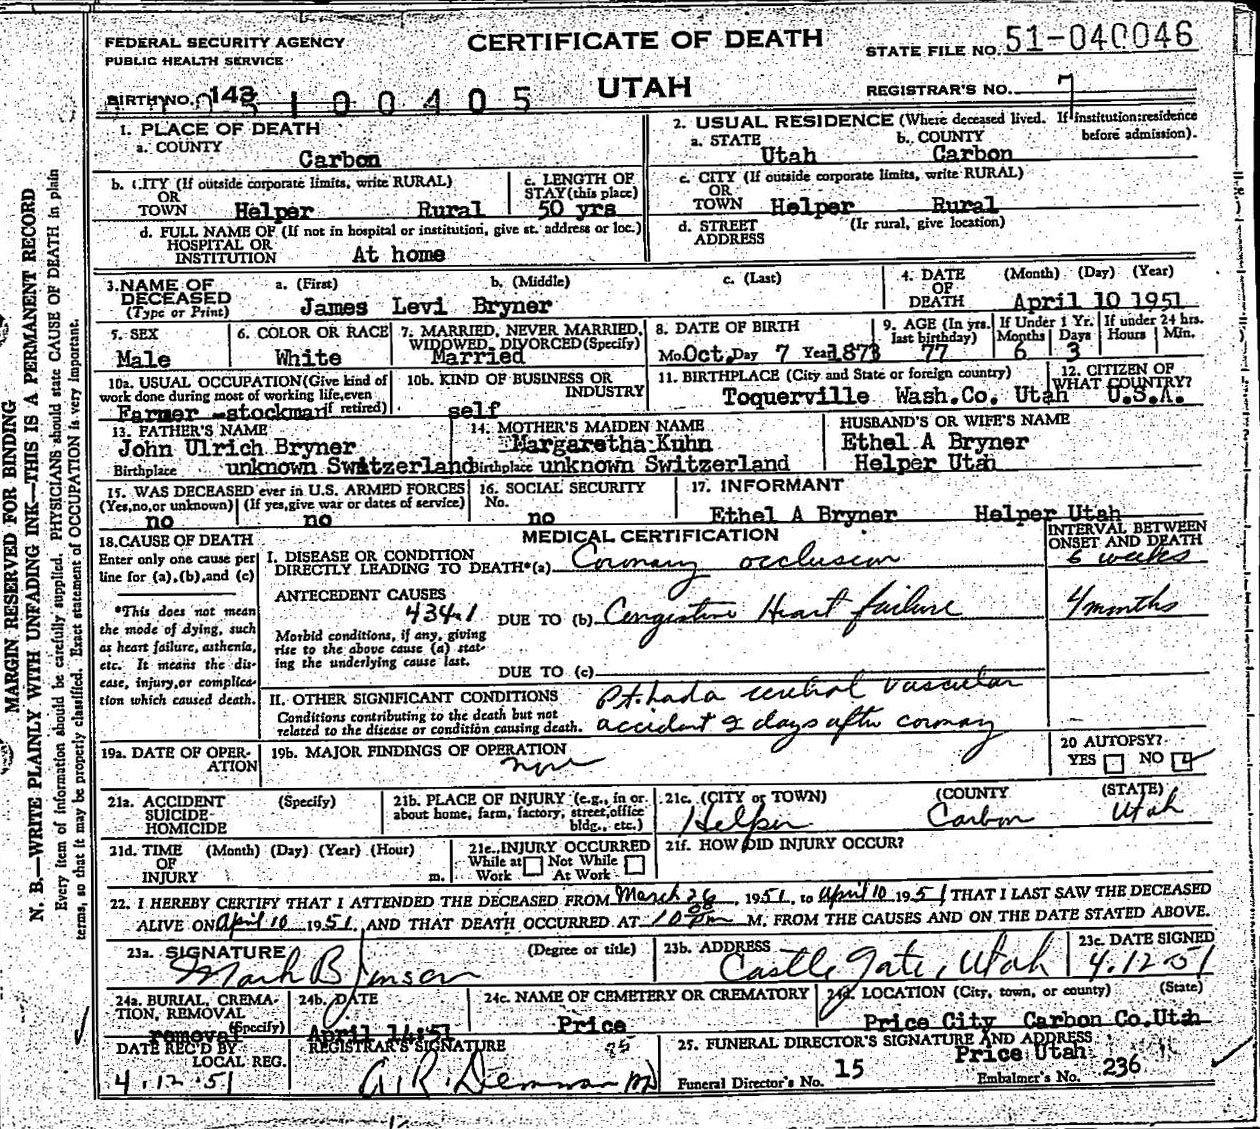 FEDERAL SECURITY AGENCY
PUBLIC HEALTH SERVICE
CERTIFICATE OF DEATH
UTAH
STATE FILE NO. 51-040046
REGISTRAR'S NO. 7
BIRTH NO. 143 100405
1. PLACE OF DEATH
a. COUNTY
Carbon
2. USUAL RESIDENCE (Where deceased lived. If institution: residence before admission).
a. STATE b. COUNTY
Utah Carbon
b. CITY (If outside corporate limits, write RURAL)
OR
TOWN Helper Rural
c. LENGTH OF
STAY (this place)
50 yrs
c. CITY (If outside corporate limits, write RURAL)
OR
TOWN Helper Rural
d. FULL NAME OF (If not in hospital or institution, give st. address or loc.)
HOSPITAL OR
INSTITUTION At home
d. STREET (If rural, give location)
ADDRESS
3. NAME OF
DECEASED
(Type or Print)
a. (First) b. (Middle) c. (Last)
James Levi Bryner
4. DATE
OF
DEATH
(Month) (Day) (Year)
April 10 1951
5. SEX
Male
6. COLOR OR RACE
White
7. MARRIED, NEVER MARRIED,
WIDOWED, DIVORCED (Specify)
Married
8. DATE OF BIRTH
Mo. Oct. Day 7 Year 1873
9. AGE (In yrs.
last birthday)
77
If Under 1 Yr.
Months Days
6 3
If under 24 hrs.
Hours Min.
10a. USUAL OCCUPATION (Give kind of
work done during most of working life, even
if retired)
Farmer -stockman
10b. KIND OF BUSINESS OR
INDUSTRY
self
11. BIRTHPLACE (City and State or foreign country)
Toquerville Wash.Co. Utah
12. CITIZEN OF
WHAT COUNTRY?
U.S.A.
13. FATHER'S NAME
John Ulrich Bryner
Birthplace unknown Switzerland
14. MOTHER'S MAIDEN NAME
Margaretha Kuhn
Birthplace unknown Switzerland
HUSBAND'S OR WIFE'S NAME
Ethel A Bryner
Helper Utah
15. WAS DECEASED ever in U.S. ARMED FORCES
(Yes, no, or unknown) (If yes, give war or dates of service)
no no
16. SOCIAL SECURITY
No.
no
17. INFORMANT
Ethel A Bryner Helper Utah
18. CAUSE OF DEATH
Enter only one cause per
line for (a), (b), and (c)
*This does not mean
the mode of dying, such
as heart failure, asthenia,
etc. It means the dis-
ease, injury, or complica-
tion which caused death.
MEDICAL CERTIFICATION
INTERVAL BETWEEN
ONSET AND DEATH
I. DISEASE OR CONDITION
DIRECTLY LEADING TO DEATH*(a) Coronary occlusion
6 weeks
ANTECEDENT CAUSES
434.1
DUE TO (b) Congestive Heart failure
4 months
Morbid conditions, if any, giving
rise to the above cause (a) stat-
ing the underlying cause last.
DUE TO (c)
II. OTHER SIGNIFICANT CONDITIONS
Conditions contributing to the death but not
related to the disease or condition causing death.
Pt. had a cerebral vascular
accident 2 days after coronary
19a. DATE OF OPER-
ATION
19b. MAJOR FINDINGS OF OPERATION
none
20 AUTOPSY?
YES NO
21a. ACCIDENT (Specify)
SUICIDE-
HOMICIDE
21b. PLACE OF INJURY (e.g., in or
about home, farm, factory, street, office
bldg., etc.)
21c. (CITY or TOWN) (COUNTY (STATE)
Helper Carbon Utah
21d. TIME (Month) (Day) (Year) (Hour)
OF
INJURY m.
21e. INJURY OCCURRED
While at Work Not While At Work
21f. HOW DID INJURY OCCUR?
22. I HEREBY CERTIFY THAT I ATTENDED THE DECEASED FROM March 26, 1951, to April 10 1951 THAT I LAST SAW THE DECEASED
ALIVE ON April 10 1951, AND THAT DEATH OCCURRED AT 10 00 pm M. FROM THE CAUSES AND ON THE DATE STATED ABOVE.
23a. SIGNATURE (Degree or title)
Mark B Jensen
23b. ADDRESS
Castle Gate, Utah
23c. DATE SIGNED
4.12.51
24a. BURIAL, CREMA-
TION, REMOVAL
(Specify)
removal
24b. DATE
April 14:51
24c. NAME OF CEMETERY OR CREMATORY
Price
24d. LOCATION (City, town, or county) (State)
Price City Carbon Co. Utah
DATE REC'D BY
LOCAL REG.
4.12.51
REGISTRAR'S SIGNATURE
25. FUNERAL DIRECTOR'S SIGNATURE AND ADDRESS
Price Utah
Funeral Director's No. 15 Embalmer's No. 236
MARGIN RESERVED FOR BINDING
N. B.—WRITE PLAINLY WITH UNFADING INK—THIS IS A PERMANENT RECORD
Every item of information should be carefully supplied. PHYSICIANS should state CAUSE OF DEATH in plain
terms, so that it may be properly classified. Exact statement of OCCUPATION is very important.